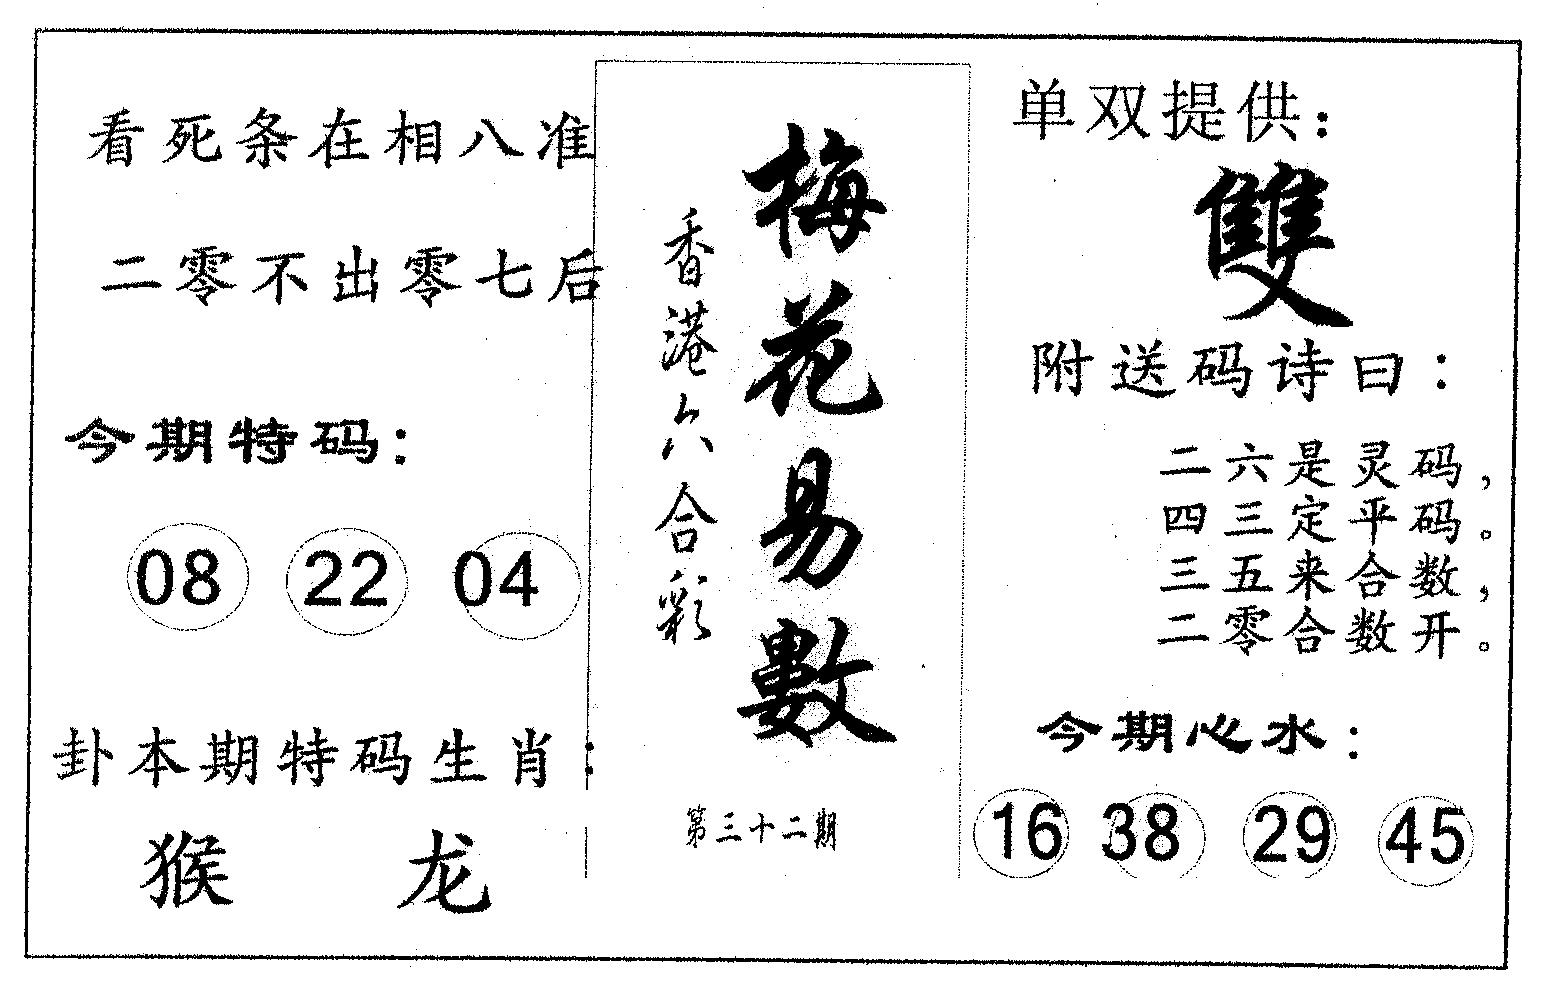 看死条在相八准
二零不出零七后
今期特码：
08 22 04
卦本期特码生肖：
猴 龙
香港六合彩
梅花易數
第三十二期
单双提供：
雙
附送码诗曰：
二六是灵码，
四三定平码。
三五来合数，
二零合数开。
今期心水：
16 38 29 45